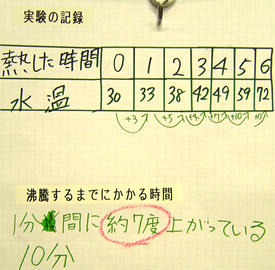 実験の記録
熱した時間 0 1 2 3 4 5 6
水温 30 33 38 42 49 59 72
+3 +5 +4 +7 +10
沸騰するまでにかかる時間
1分間に約7度上がっている
10分